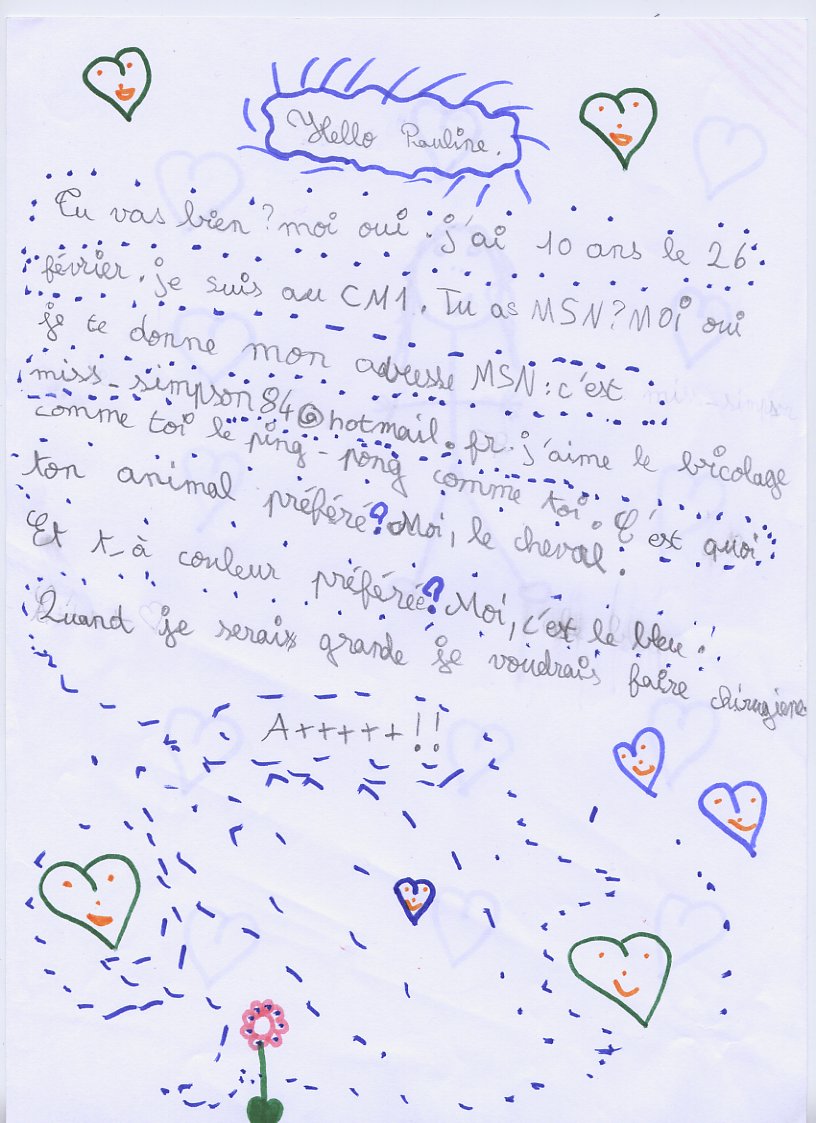 Hello Pauline.
Tu vas bien ? moi oui. j'ai 10 ans le 26
février. je suis au CM1. Tu as MSN ? MOi oui
je te donne mon adresse MSN : c'est
miss_simpson84@hotmail.fr. j'aime le bricolage
comme toi le ping-pong comme toi. C'est quoi
ton animal préféré ? Moi, le cheval.
Et t_à couleur préférée ? Moi, c'est le bleu.
Quand je serais grande je voudrais faire chirugiene
A+++++ !!